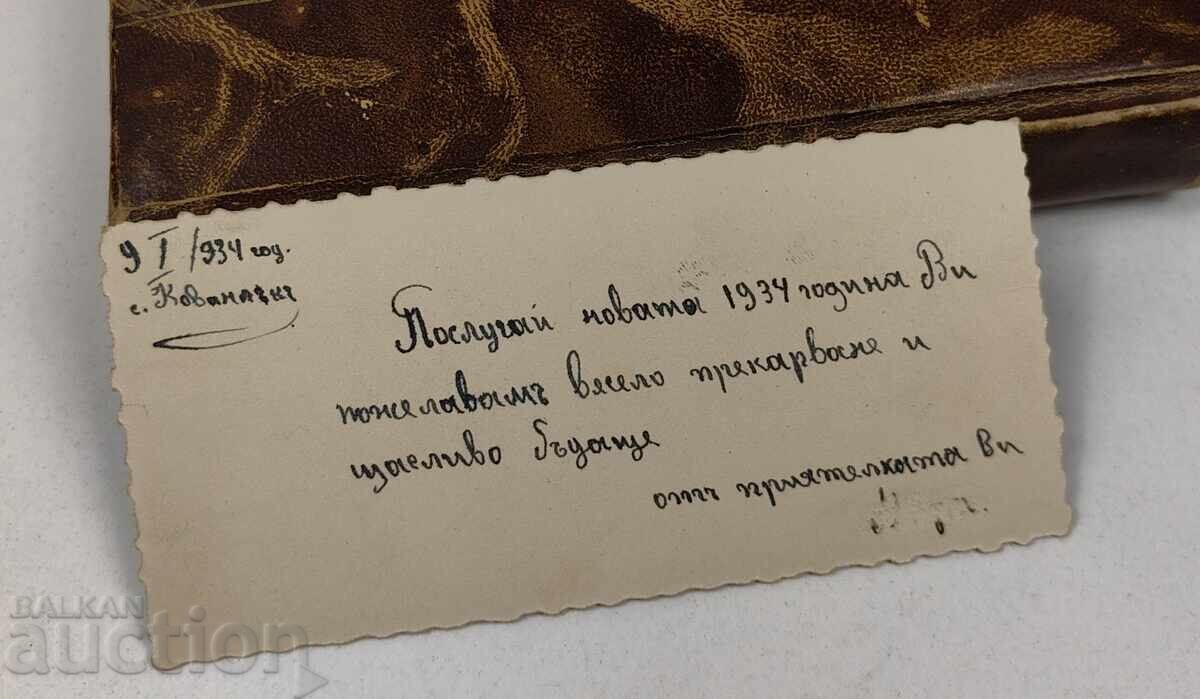 9 I /934 год.
с. Кованлъкъ
Послучай новата 1934 година Ви
пожелавамъ весело прекарване и
щасливо бъдаще
отъ приятелката Ви
BALKAN
auction